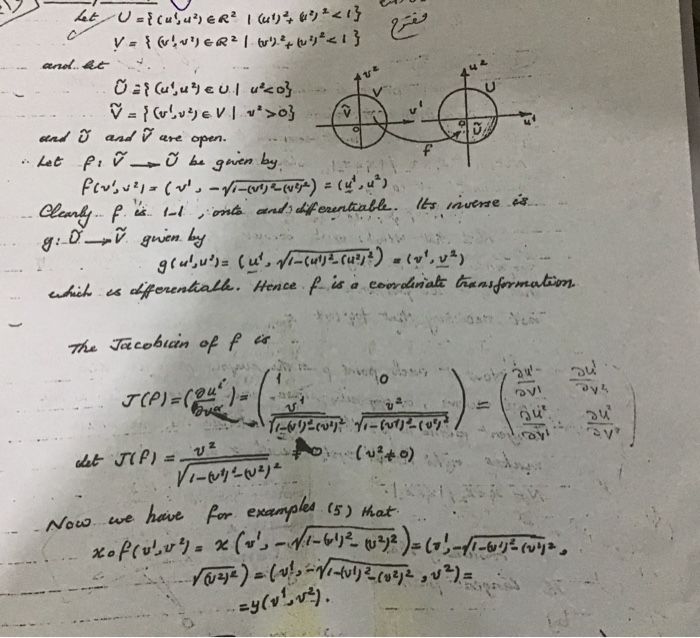 Let U = {(u¹,u²) ∈ R² | (u¹)²+(u²)² < 1}
V = {(v¹,v²) ∈ R² | (v¹)²+(v²)² < 1}
and let
Ũ = {(u¹,u²) ∈ U | u² < 0}
Ṽ = {(v¹,v²) ∈ V | v² > 0}
and Ũ and Ṽ are open.
v² V Ṽ v¹ o f u² U Ũ u¹ o
Let f: Ṽ → Ũ be given by
f(v¹,v²) = (v¹, -√1-(v¹)²-(v²)²) = (u¹,u²)
Clearly f is 1-1, onto and differentiable. Its inverse is
g: Ũ → Ṽ given by
g(u¹,u²) = (u¹, √1-(u¹)²-(u²)²) = (v¹,v²)
which is differentiable. Hence f is a coordinate transformation.
The Jacobian of f is
J(f) = (∂uⁱ/∂vᵅ) = ( 1 0 ; v¹/√1-(v¹)²-(v²)² v²/√1-(v¹)²-(v²)² ) = ( ∂u¹/∂v¹ ∂u¹/∂v² ; ∂u²/∂v¹ ∂u²/∂v² )
det J(f) = v²/√1-(v¹)²-(v²)² ≠ 0 (v² ≠ 0)
Now we have for examples (5) that
x∘f(v¹,v²) = x(v¹, -√1-(v¹)²-(v²)²) = (v¹, -√1-(v¹)²-(v²)²,
√(v²)²) = (v¹, -√1-(v¹)²-(v²)², v²) =
= y(v¹,v²).